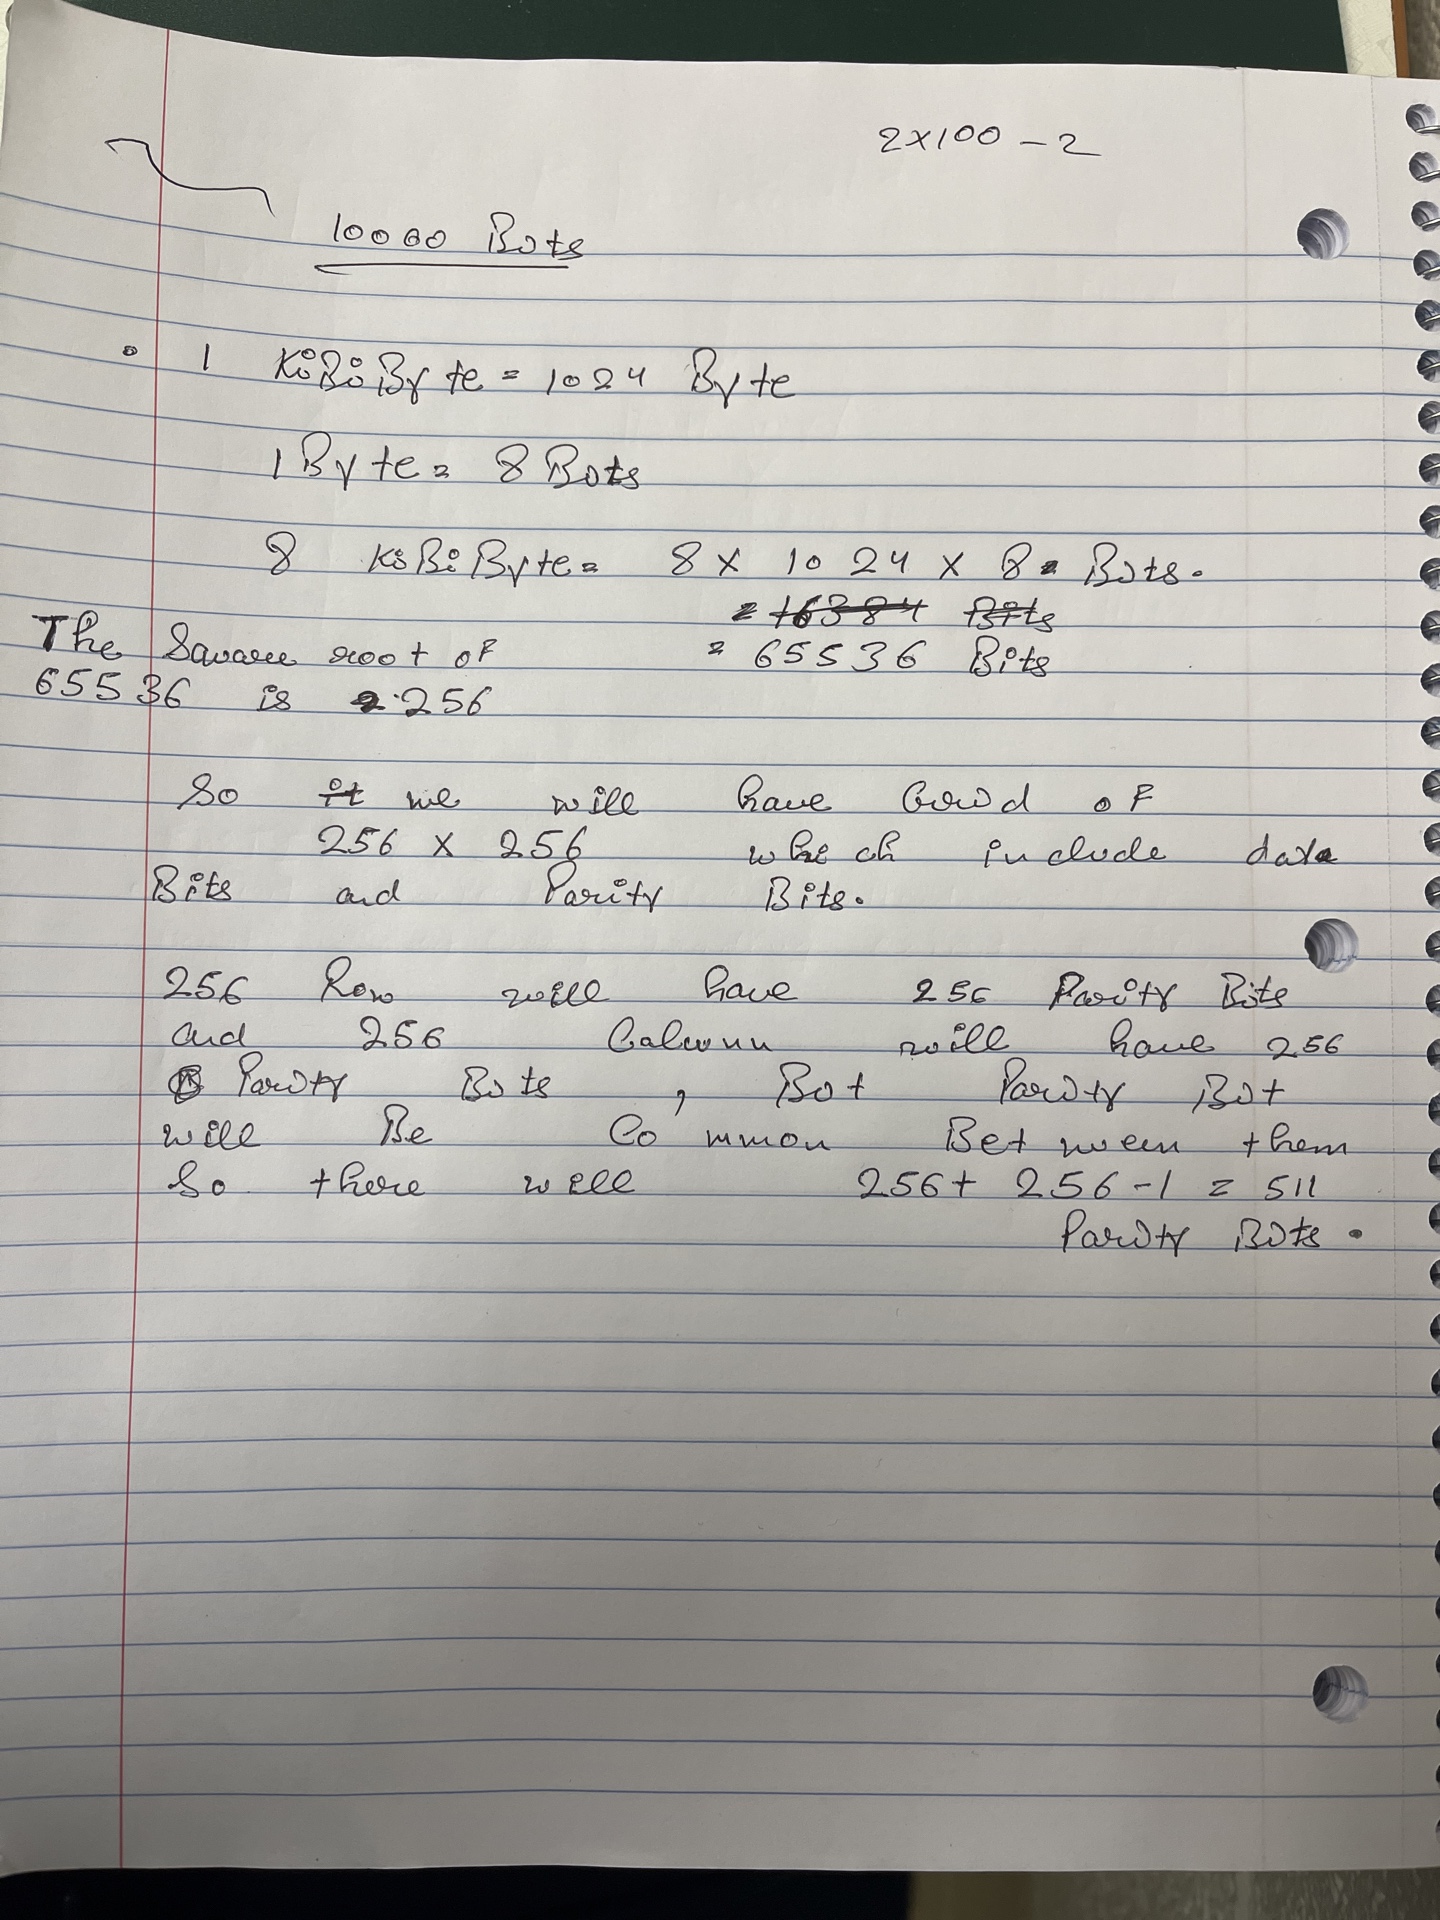 2x100 - 2
10000 Bits
1 KiBiByte = 1024 Byte
1 Byte = 8 Bits
8 KiBiByte = 8 x 1024 x 8 = Bits.
= 16384 Bits
The Square root of = 65536 Bits
65536 is 256
So it we will have Grid of
256 x 256 which include data
Bits and Parity Bits.
256 Row will have 256 Parity Bits
and 256 Calwunn will have 256
Parity Bits , Bit Parity Bit
will Be Common Between them
So there will 256 + 256 - 1 = 511
Parity Bits .